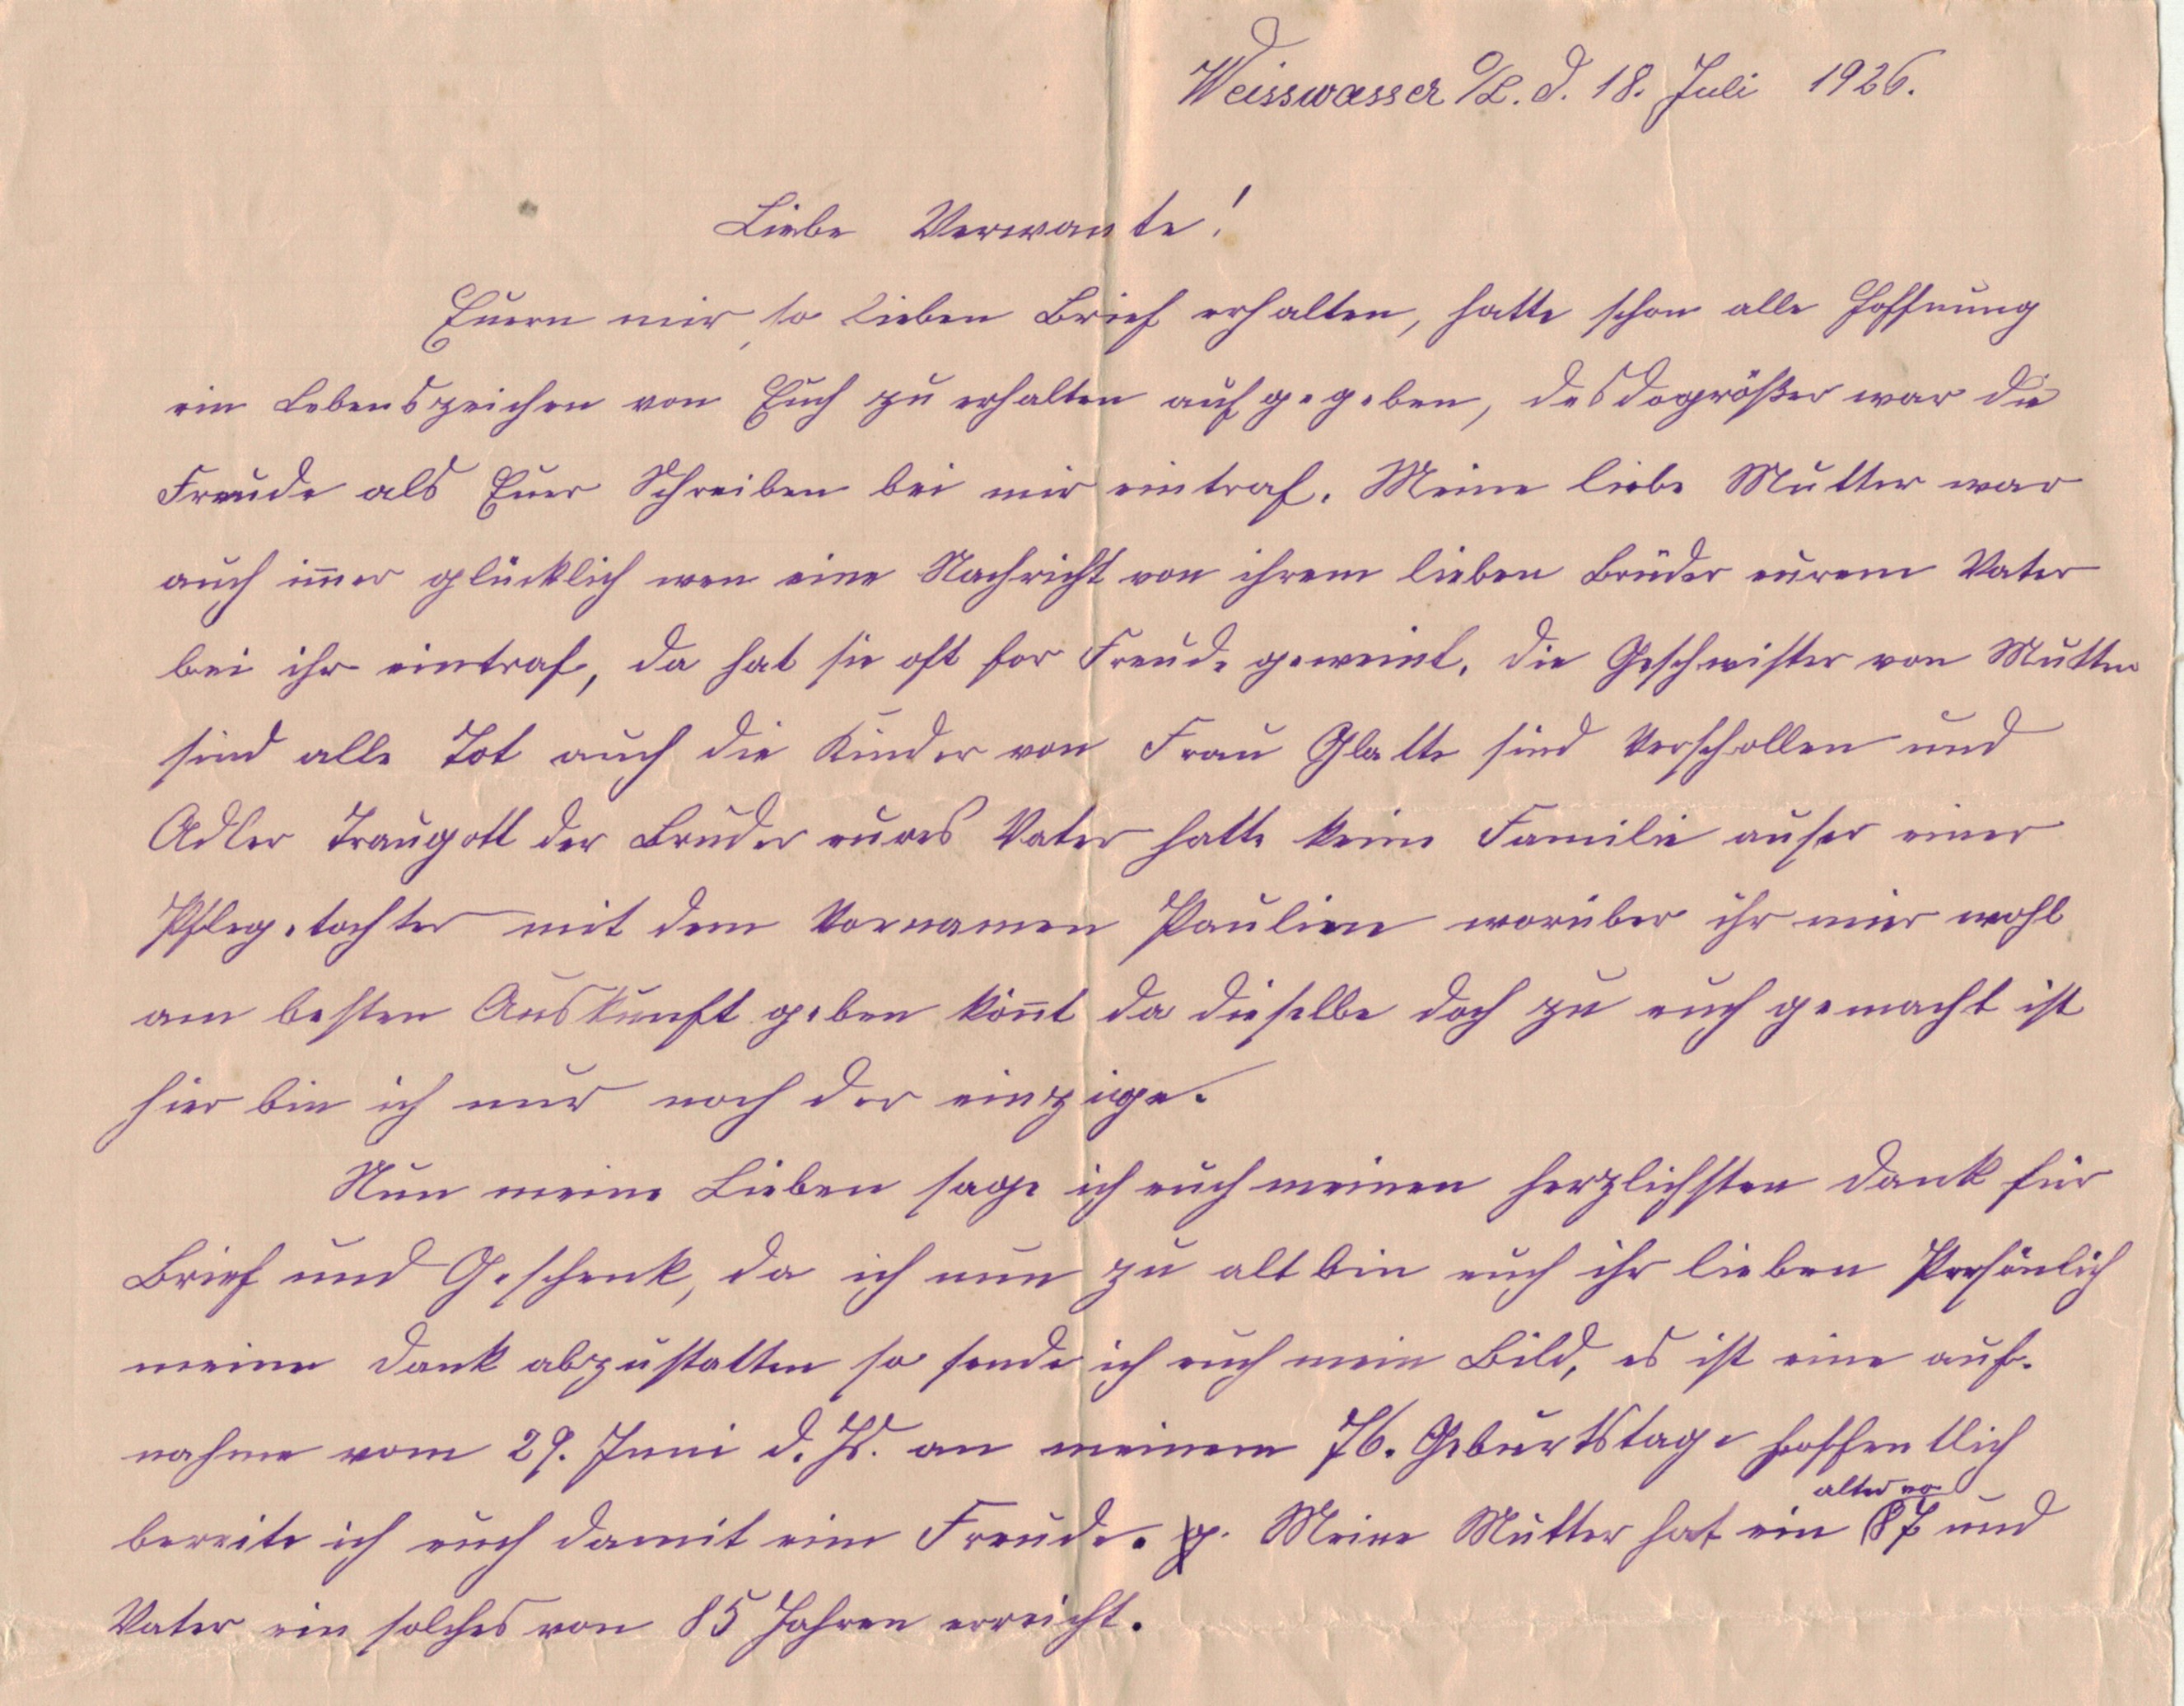 Weisswasser O/L. d. 18. Juli 1926.
Liebe Verwante!
Euern mir so lieben Brief erhalten, hatte schon alle Hoffnung
ein Lebenszeichen von Euch zu erhalten aufgegeben, desdogrößer war die
Freude als Euer Schreiben bei mir eintraf. Meine liebe Mutter war
auch im̄er glücklich wen eine Nachricht von ihrem lieben Bruder eurem Vater
bei ihr eintraf, da hat sie oft for Freude geweint. Die Geschwister von Mutter
sind alle Tot auch die Kinder von Frau Glatte sind Verschollen und
Adler Traugott der Bruder eures Vater hatte keine Familie auser einer
Pflegetochter mit dem Vornamen Paulien worüber ihr mir wohl
am besten Auskunft geben kön̄t da dieselbe doch zu euch gemacht ist
hier bin ich nur noch der einzige.
Nun meine Lieben sage ich euch meinen herzlichsten Dank für
Brief und Geschenk, da ich nun zu alt bin euch ihr lieben Persönlich
meinen Dank abzustatten so sende ich euch mein Bild, es ist eine auf-
nahme vom 29. Juni d. Js. an meinem 76. Geburtstage hoffentlich
bereite ich euch damit eine Freude. Meine Mutter hat ein alter vo 87 und
Vater ein solches von 85 Jahren erreicht.